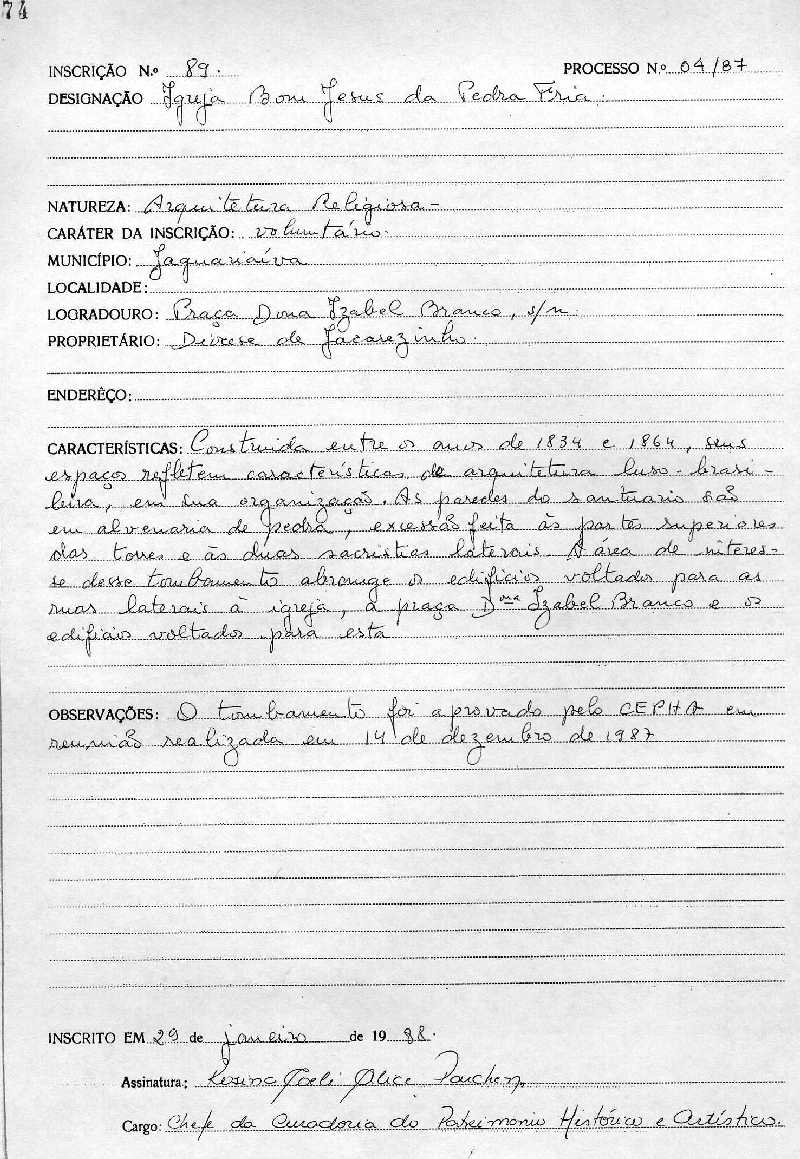 74
INSCRIÇÃO N.º 89. PROCESSO N.º 04/87
DESIGNAÇÃO Igreja Bom Jesus da Pedra Fria.
NATUREZA: Arquitetura Religiosa -
CARÁTER DA INSCRIÇÃO: voluntário.
MUNICÍPIO: Jaguariaíva
LOCALIDADE:
LOGRADOURO: Praça Dona Izabel Branco, s/n.
PROPRIETÁRIO: Diocese de Jacarezinho.
ENDERÊÇO:
CARACTERÍSTICAS: Construida entre os anos de 1834 e 1864, seus
espaços refletem características de arquitetura luso-brasi-
leira, em sua organização. As paredes do santuario são
em alvenaria de pedra, excessão feita às partes superiores
das torres e às duas sacristias laterais. A área de interes-
se desse tombamento abrange os edifícios voltados para as
ruas laterais à igreja, a praça Dona Izabel Branco e os
edifícios voltados para esta
OBSERVAÇÕES: O tombamento foi aprovado pelo CEPHA em
reunião realizada em 14 de dezembro de 1987
INSCRITO EM 29 de janeiro de 1988.
Assinatura: Rosina Coeli Alice Parchen.
Cargo: Chefe da Curadoria do Patrimonio Histórico e Artístico.